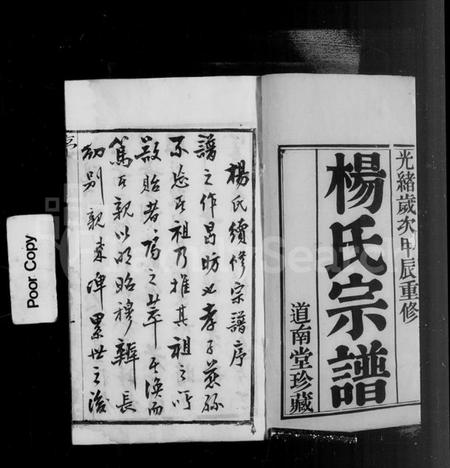 光緒歲次甲辰重修
楊氏宗譜
道南堂珍藏
楊氏續修宗譜序
譜之作昌昉也孝子慈孫
不忘其祖乃推其祖之所
敦睦者為之萃其渙而
篤其親以明昭穆辨長
幼別親疎俾累世之後
Poor Copy